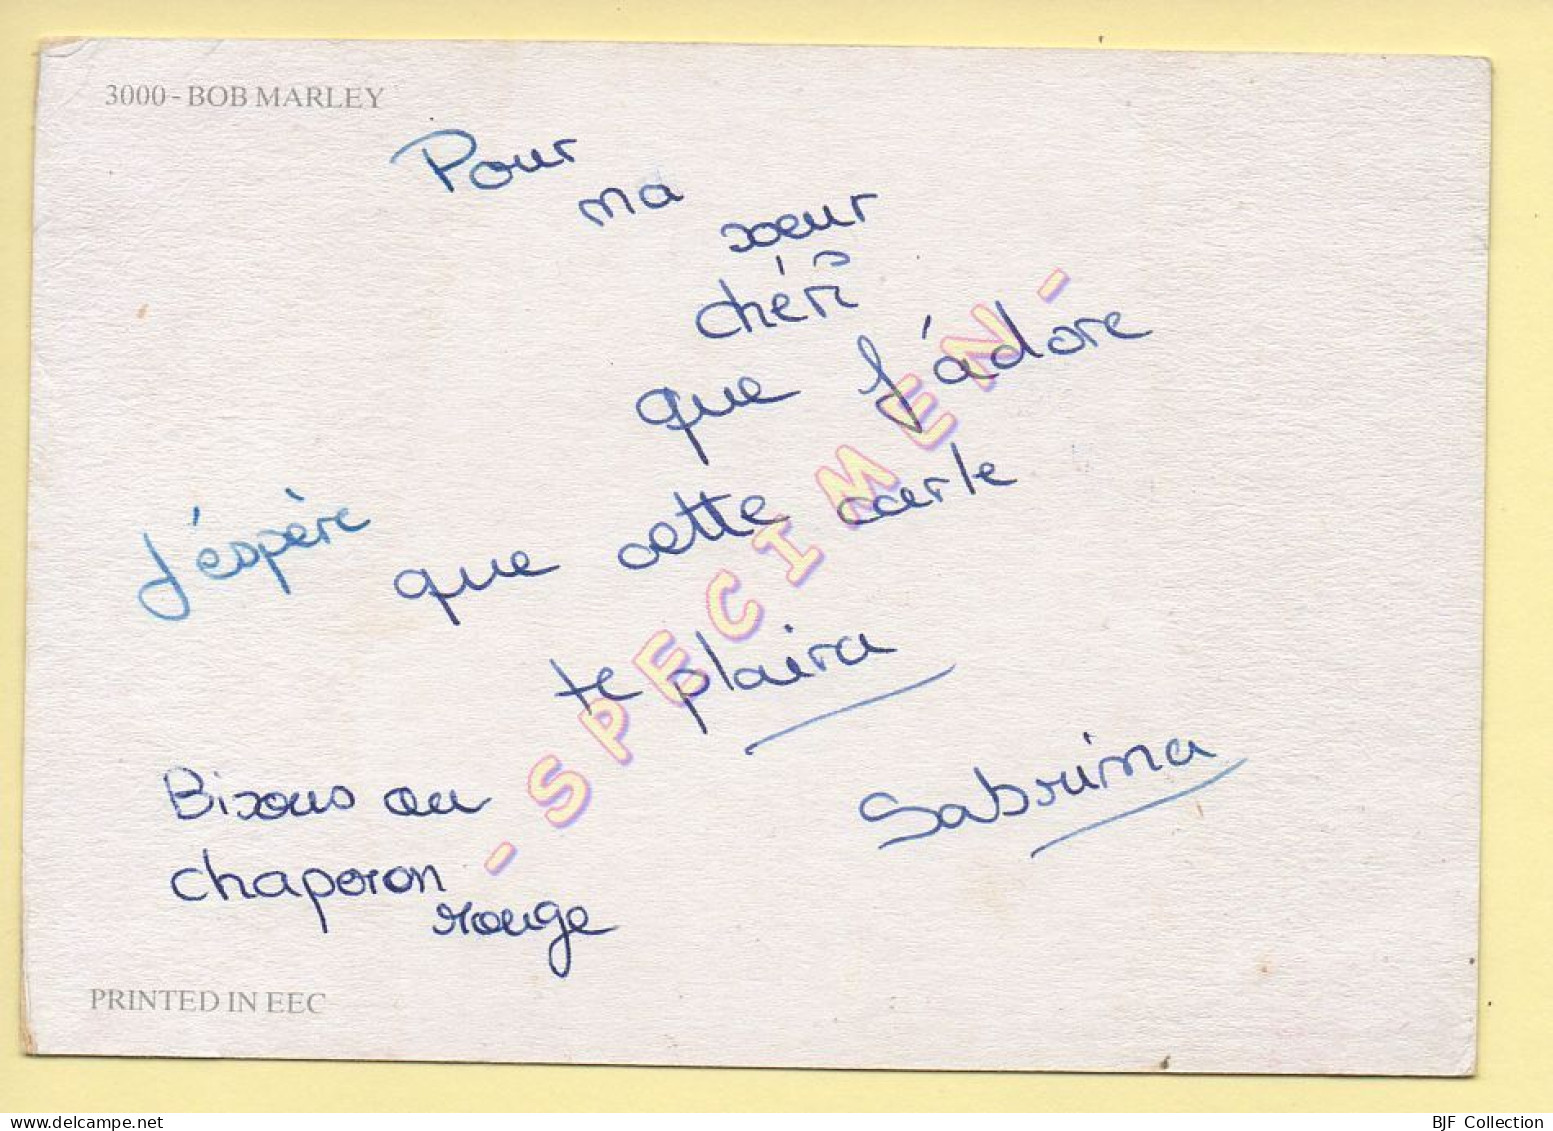 3000 - BOB MARLEY
Pour
ma
soeur
chéri
que j'adore
J'espère que cette carte
te plaira
Sabrina
Bisous au
chaperon
rouge
PRINTED IN EEC
- SPECIMEN -
BJF Collection